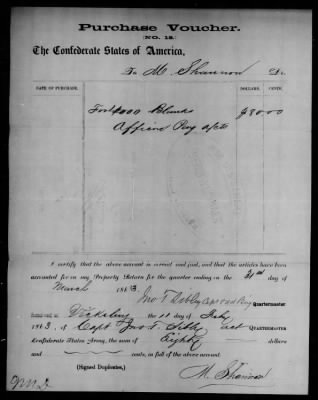 Purchase Voucher.
(NO. 18.)
The Confederate States of America,
To M. Shannon Dr.
DATE OF PURCHASE. DOLLARS. CENTS.
For 1000 Blanks $80.00
Officers Pay
I certify that the above account is correct and just, and that the articles have been
accounted for on my Property Return for the quarter ending on the 31st day of
March 1863.
Jno T Sibley Capt
Quartermaster
Vicksburg the 11 day of Feby
1863, of Capt Jno. T. Sibley act QUARTERMASTER
Confederate States Army, the sum of Eighty dollars
and cents, in full of the above account.
(Signed Duplicates.) M. Shannon